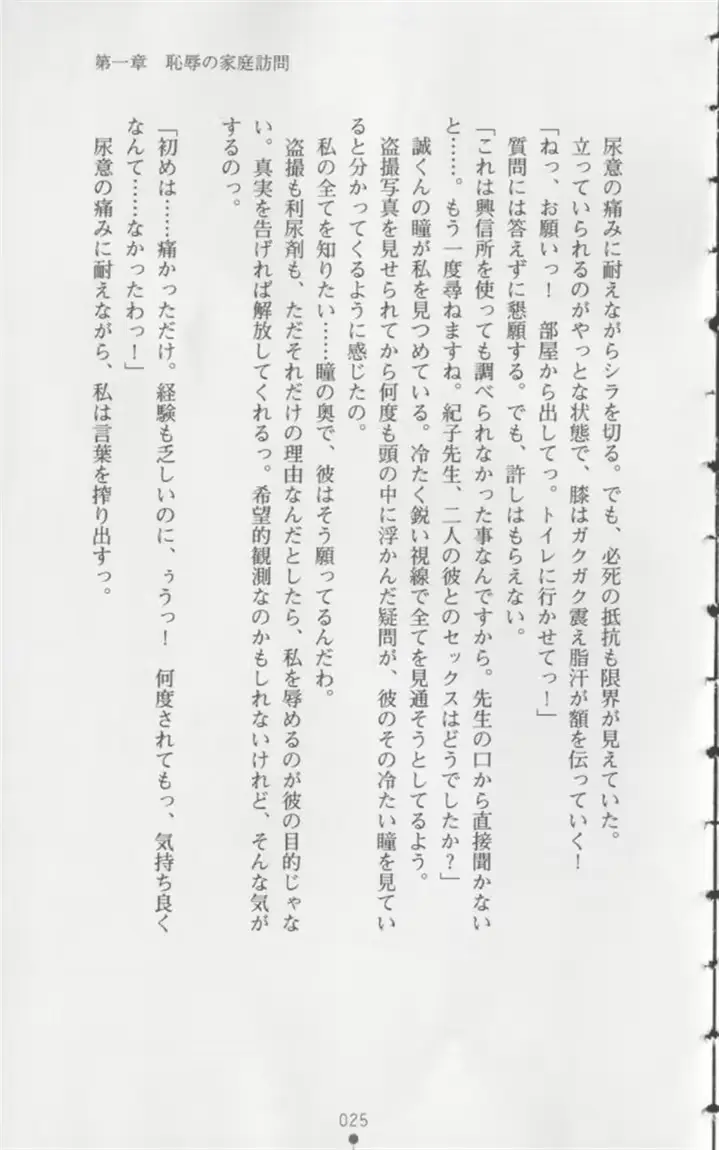 第一章　恥辱の家庭訪問
尿意の痛みに耐えながらシラを切る。でも、必死の抵抗も限界が見えていた。
立っていられるのがやっとな状態で、膝はガクガク震え脂汗が額を伝っていく！
「ねっ、お願いっ！　部屋から出してっ。トイレに行かせてっ！」
質問には答えずに懇願する。でも、許しはもらえない。
「これは興信所を使っても調べられなかった事なんですから。先生の口から直接聞かない
と……。もう一度尋ねますね。紀子先生、二人の彼とのセックスはどうでしたか？」
誠くんの瞳が私を見つめている。冷たく鋭い視線で全てを見通そうとしてるよう。
盗撮写真を見せられてから何度も頭の中に浮かんだ疑問が、彼のその冷たい瞳を見てい
ると分かってくるように感じたの。
私の全てを知りたい……瞳の奥で、彼はそう願ってるんだわ。
盗撮も利尿剤も、ただそれだけの理由なんだとしたら、私を辱めるのが彼の目的じゃな
い。真実を告げれば解放してくれるっ。希望的観測なのかもしれないけれど、そんな気が
するのっ。
「初めは……痛かっただけ。経験も乏しいのに、ぅうっ！　何度されてもっ、気持ち良く
なんて……なかったわっ！」
尿意の痛みに耐えながら、私は言葉を搾り出すっ。
025